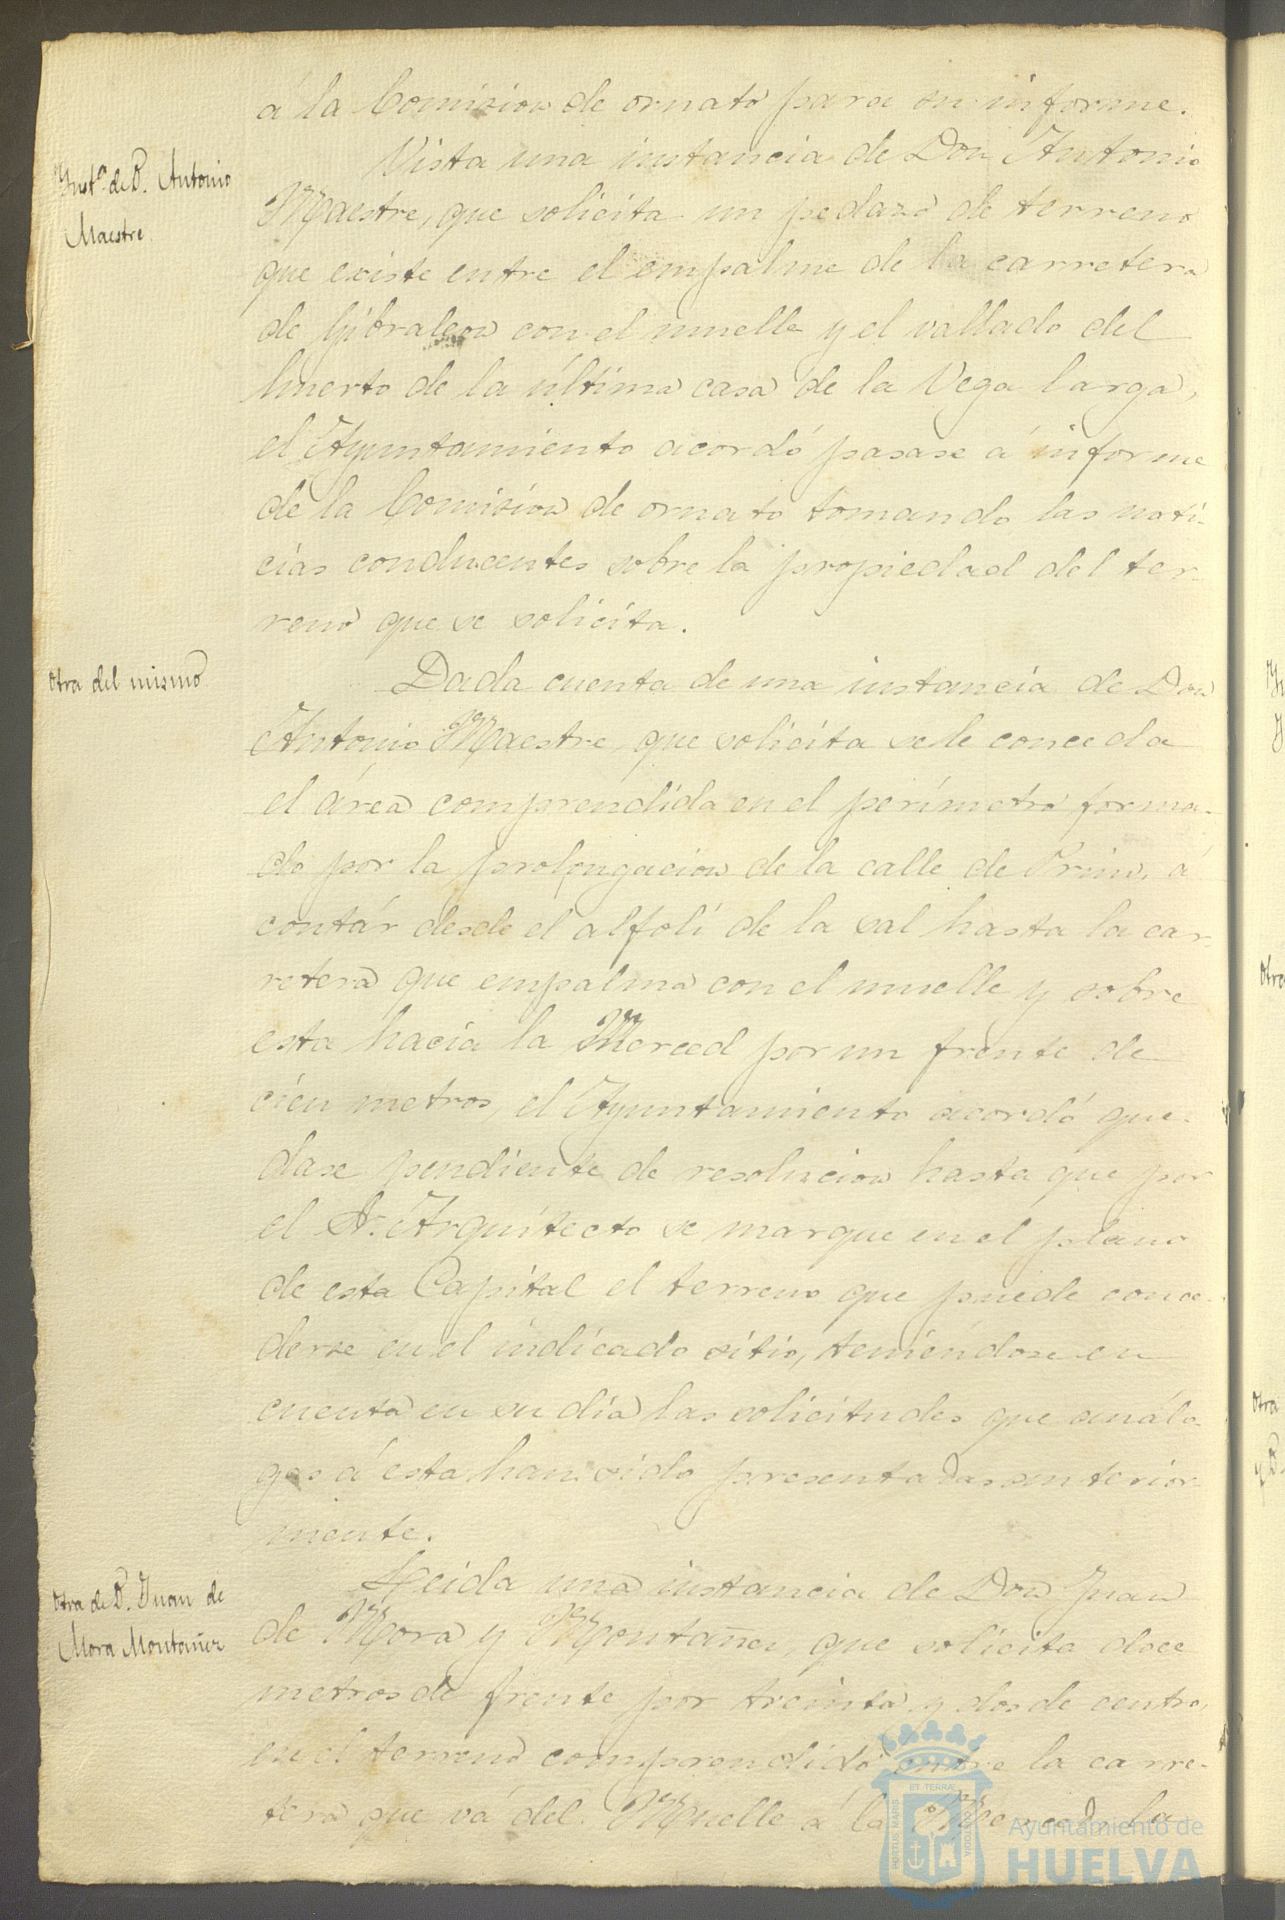 á la Comision de ornato para su informe.
Inst.ª de D. Antonio
Maestre
Vista una instancia de Don Antonio
Maestre, que solicita un pedazo de terreno
que existe entre el empalme de la carretera
de Gibraleon con el muelle y el vallado del
huerto de la última casa de la Vega larga,
el Ayuntamiento acordó pasase á informe
de la Comision de ornato tomando las noti-
cias conducentes sobre la propiedad del ter-
reno que se solicita.
Otra del mismo
Dada cuenta de una instancia de Don
Antonio Maestre, que solicita se le conceda
el área comprendida en el perímetro forma-
do por la prolongacion de la calle de Prim, á
contár desde el alfolí de la sal hasta la car-
retera que empalma con el muelle y sobre
esta hacia la Merced por un frente de
cien metros, el Ayuntamiento acordó que-
dase pendiente de resolucion hasta que por
el Sr. Arquitecto se marque en el plano
de esta Capital el terreno que puede conce-
derse en el indicado sitio, teniéndose en
cuenta en su dia las solicitudes que análo-
gas á esta han sido presentadas anterior-
mente.
Otra de D. Juan de
Mora Montañer
Leida una instancia de Don Juan
de Mora y Montañer que solicita doce
metros de frente por treinta y dos de centro,
en el terreno comprendido entre la carre-
tera que vá del Muelle á la Merced, la
ET TERRÆ
PORTUS MARIS
CUSTODIA
Ayuntamiento de
HUELVA
Otra
Otra
y D.